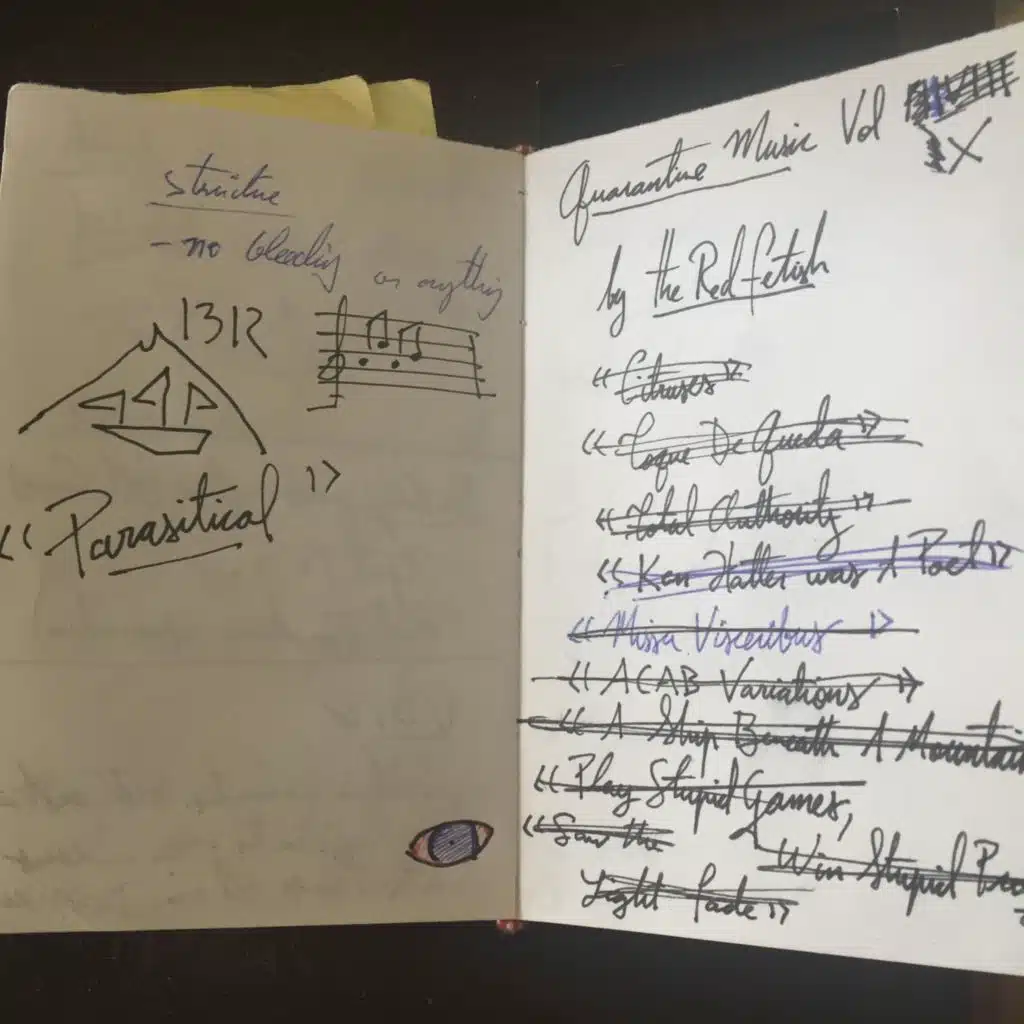 - no bleeding or anything
1312
<< Parasitical >>
Quarantine Music Vol
X
by the Red Fetish
<< Citruses >>
<< Toque De Queda >>
<< Total Authority >>
<< Ken Hatter was A Poet >>
<< Missa Visceribus >>
<< ACAB Variations >>
<< A Ship Beneath A Mountain
<< Play Stupid Games,
Win Stupid
<< Saw the
Light Fade >>